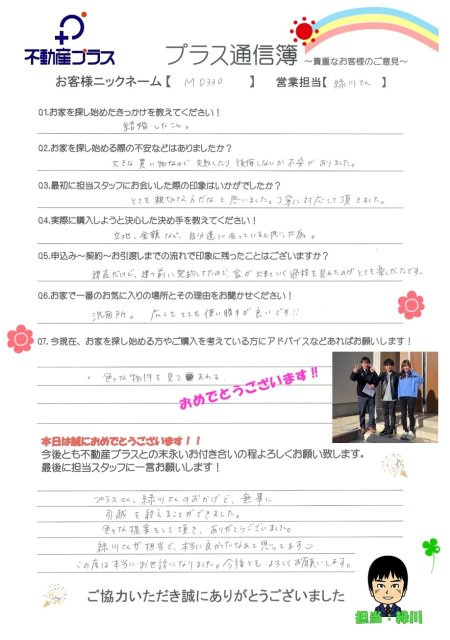 不動産プラス
プラス通信簿 ～貴重なお客様のご意見～
お客様ニックネーム【 MD330 】 営業担当【 緑川さん 】
01.お家を探し始めたきっかけを教えてください！
結婚したこと。
02.お家を探し始める際の不安などはありましたか？
大きな買い物なので失敗したり後悔しないか不安がありました。
03.最初に担当スタッフにお会いした際の印象はいかがでしたか？
とても親切な方だなと思いました。丁寧に対応して頂きました。
04.実際に購入しようと決心した決め手を教えてください！
立地、金額など、自分達に合っていると思った為。
05.申込み～契約～お引渡しまでの流れで印象に残ったことはございますか？
建売だけど、建つ前に契約してたので、家が出来ていく過程を見れたのがとても楽しかったです。
06.お家で一番のお気に入りの場所とその理由をお聞かせください！
洗面所。 広くてとても使い勝手が良いです!!
07.今現在、お家を探し始める方やご購入を考えている方にアドバイスなどあればお願いします！
・色々な物件を見て
おめでとうございます!!
本日は誠におめでとうございます！！
今後とも不動産プラスとの末永いお付き合いの程よろしくお願い致します。
最後に担当スタッフに一言お願いします！
プラスさん、緑川さんのおかげで、無事に
引越を終えることができました。
色々な提案をして頂き、ありがとうございました。
緑川さんが担当で、本当に良かったなぁと思ってます
この度は本当にお世話になりました。今後ともよろしくお願いします。
ご協力いただき誠にありがとうございました
担当・緑川